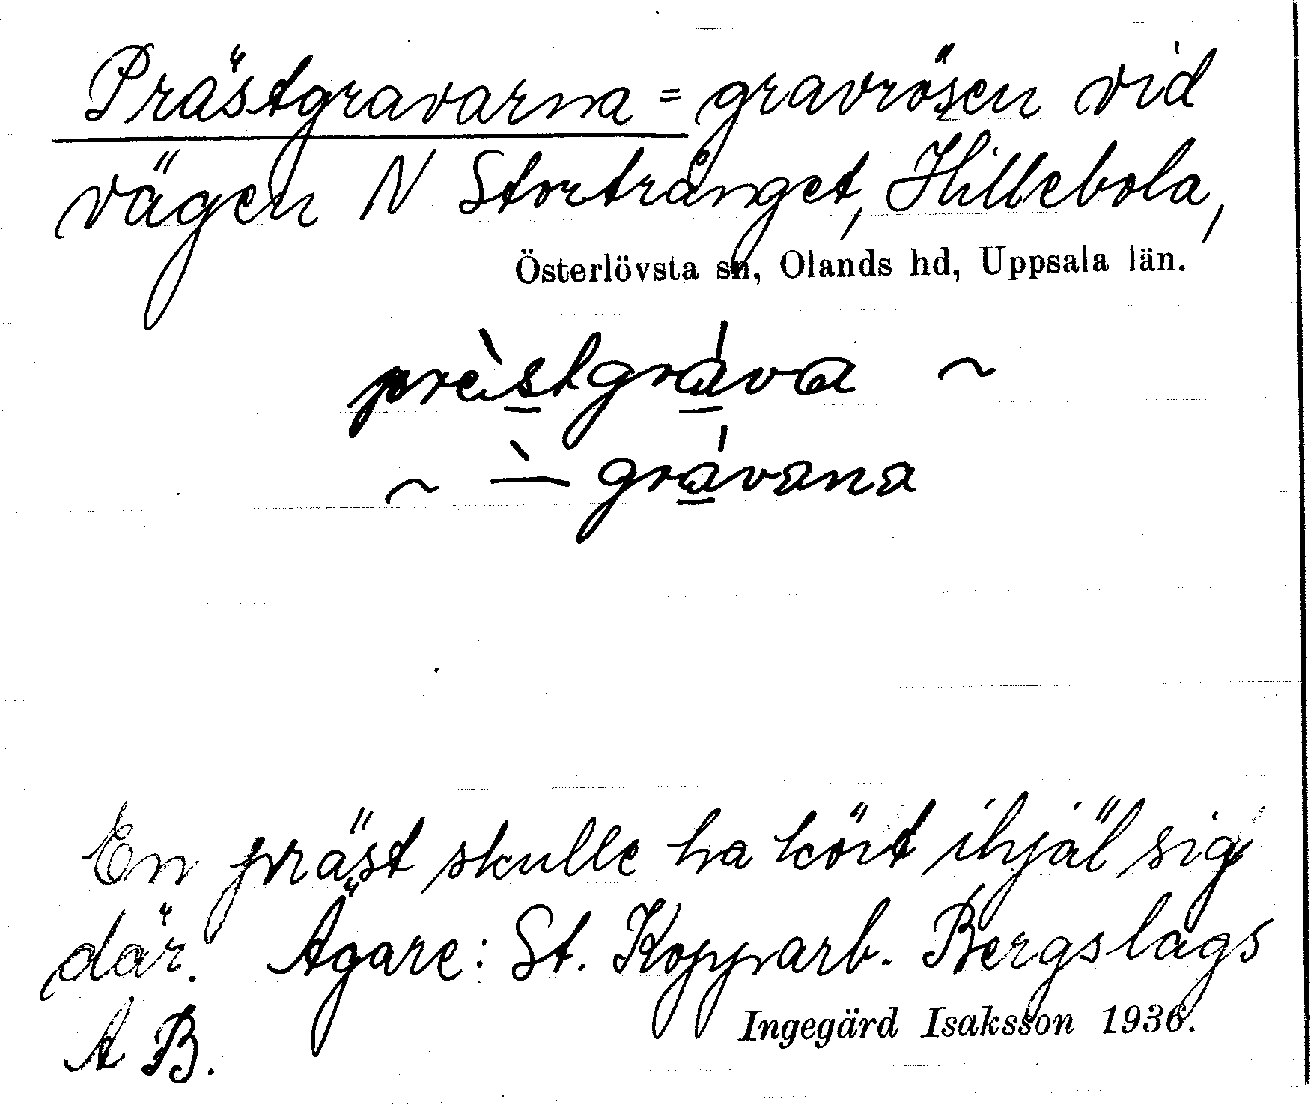 Prästgravarna = gravrösen vid
vägen N Stortränget, Hillebola,
Österlövsta sn, Olands hd, Uppsala län.
prèstgráva ~
~ -̀ grávana
En präst skulle ha kört ihjäl sig
där. Ägare: St. Kopparb. Bergslags
A B.
Ingegärd Isaksson 1936.